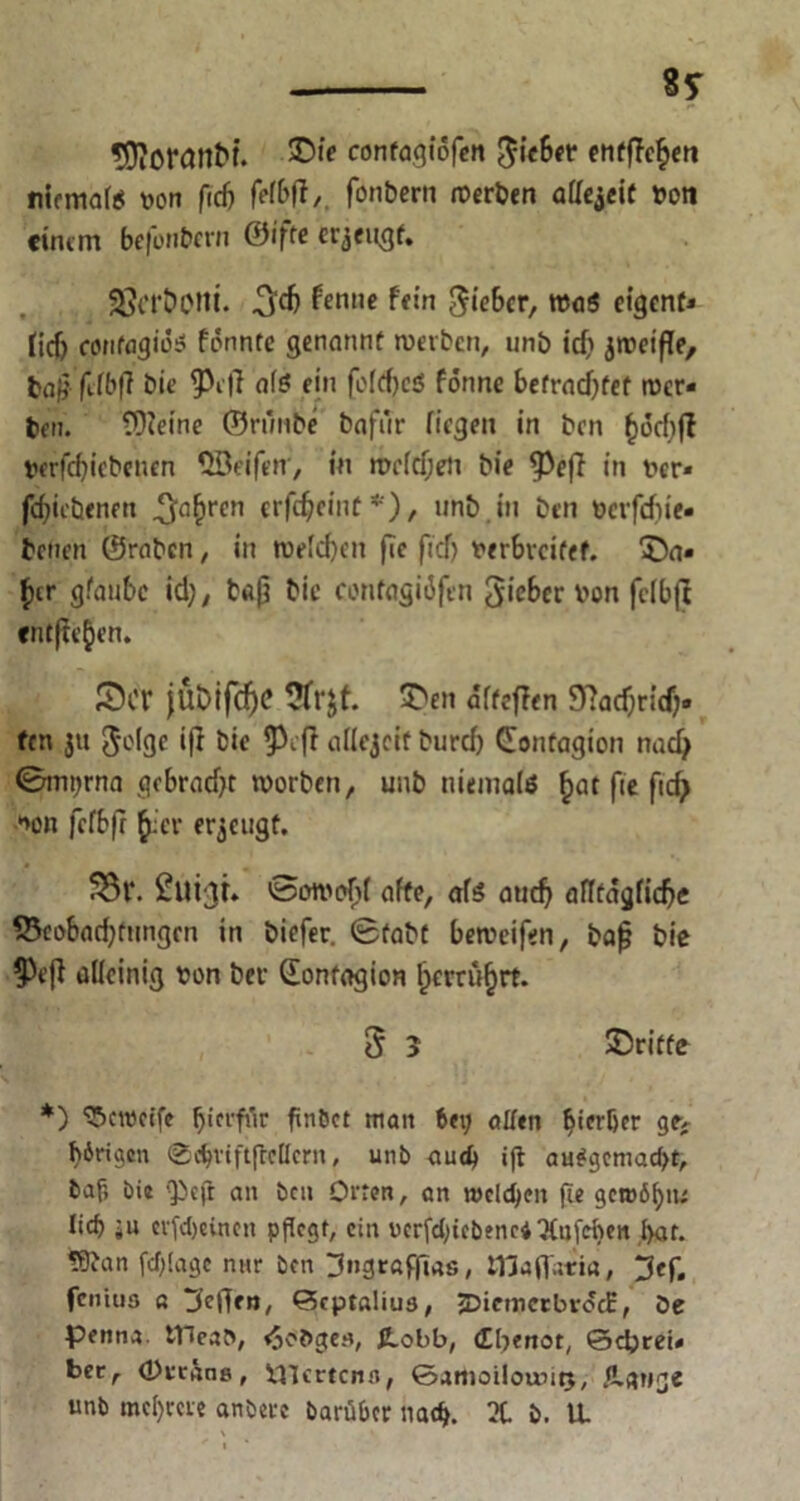 85
Morandi. Die contagiösen Fieber entstehen
niemals von sich selbst, sondern werden allezeit von
einem besondern Gifte erzeugt.
Verdoni. Ich kenne kein Fieber, was eigent-
lich contagiös könnte genannt werden, und ich zweifle,
daß selbst die Pest als ein solches könne betrachtet wer-
den. Meine Gründe dafür liegen in den höchst
verschiedenen Weisen, in welchen die Pest in ver-
schiedenen Jahren erscheint *), und in den verschie-
denen Graden, in welchen sie sich verbreitet. Da-
her glaube ich, daß die contagiösen Fieber von selbst
entstehen.
Der jüdische Arzt. Den ältesten Nachrich-
ten zu Folge ist die Pest allezeit durch Contagion nach
Smyrna gebracht worden, und niemals hat sie sich
von selbst hier erzeugt.
Br. Luigi. Sowohl alte, als auch alltägliche
Beobachtungen in dieser Stadt beweisen, daß die
Pest alleinig von der Contagion herrührt.
F 3 Dritte
*) Beweise hierfür findet man bey allen hierher ge-
hörigen Schriftstellern, und auch ist ausgemacht,
daß die Pest an den Orten, an welchen sie gewöhn-
lich zu erscheinen pflegt, ein verschiedenes Ansehen hat.
Man schlage nur den Ingrassias, Massaria, Jes.
senius a Jessen, Septalius, Diemerbröck, de
Penna. Mead, Hodges, Lobb, Chenot, Schrei-
ber, Orräns, Mertens, Samoilowitz, Lange
und mehrere andere darüber nach. A. d. U.